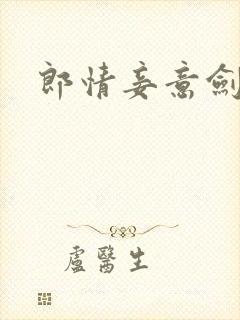 郎情妾意劍
盧醫生